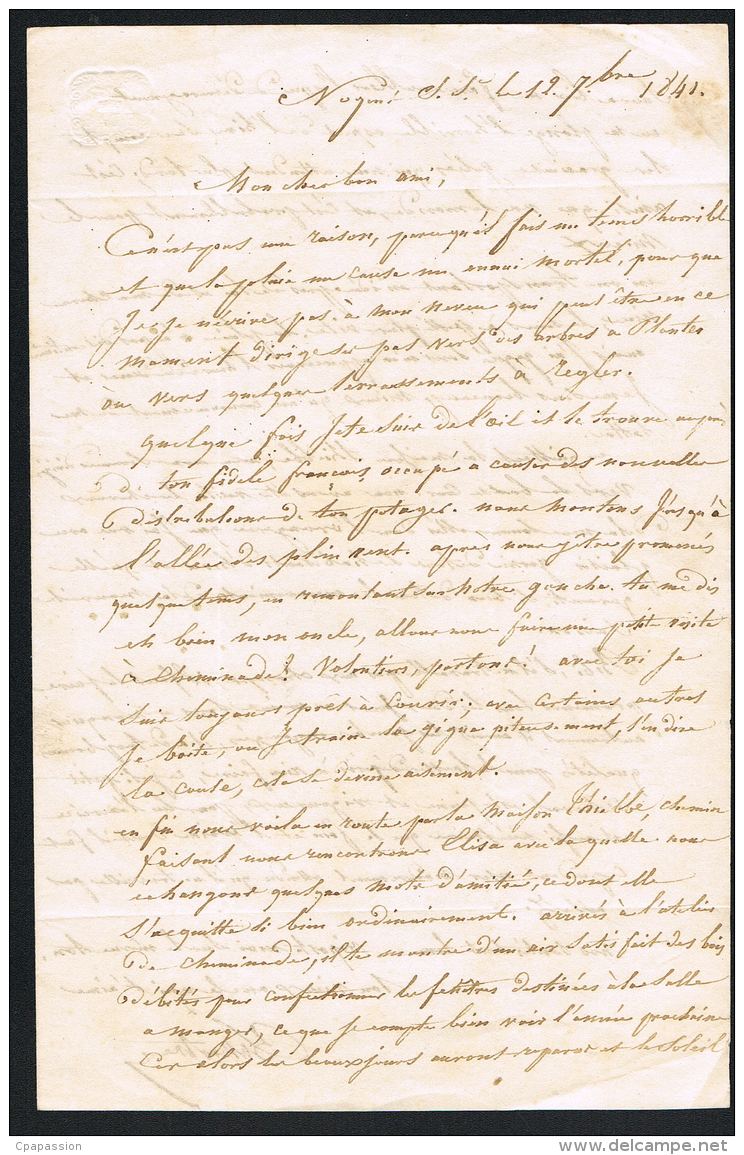 Nogent S. Sne le 12. 7.bre 1841.
Mon cher bon ami,
Ce n'est pas une raison, parcequ'il fais un temes horrible
et que la pluie me cause un ennui mortel, pour que
Je n'écrive pas à mon neveu qui peut être en ce
moment dirige ses pas vers des arbres a Planter
ou vers quelques terrassements à regler.
quelque fois Je te suis de l'œil et te trouve auprès
de ton fidele françois, occupé a causer des nouvelles
Distributions de ton potager. nous montons J'usqu'à
l'allée des plein vent. après nous y être promenés
quelque tems, en remontant sur Notre gauche. tu me dis
eh bien mon oncle, allons nous faire une petite visite
à Cheminade? Volontiers, partons! avec toi Je
suis toujours prêt à courir; avec certains autres
Je boite, ou Je traine la gigue piteusement, t'en dire
la cause, cela se devine aisément.
en fin nous voila en route par la maison Thiebbe, chemin
faisant nous rencontrons Elisa avec laquelle nous
échangons quelques mots d'amitié, ce dont elle
s'acquitte si bien ordinairement. arrivés à l'atelier
De cheminade, il te montre d'un air satisfait des bois
débités pour confectionner les fenêtres destinées à la salle
a manger, ce que Je compte bien voir l'année prochaine
Car alors les beaux jours auront reparus et le soleil
Cpapassion
delcampe.net